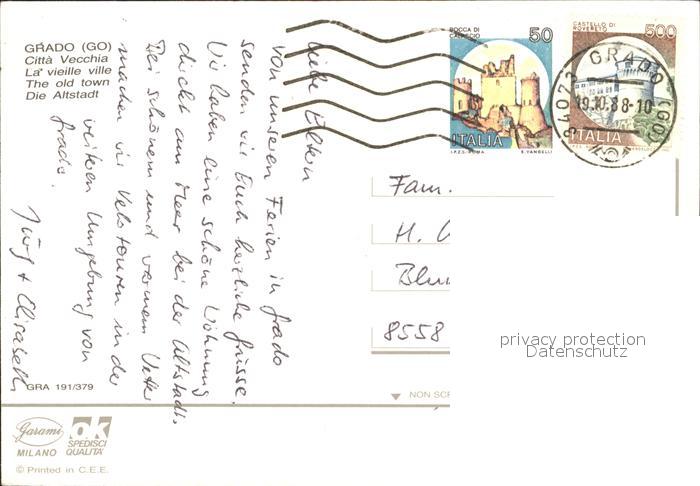 GRADO (GO)
Città Vecchia
La' vieille ville
The old town
Die Altstadt
Liebe Eltern
Von unseren Ferien in Grado
senden wir Euch herzliche Grüsse.
Wir haben eine schöne Wohnung
direkt am Meer bei der Altstadt.
Bei schönem und warmem Wetter
machen wir Velotouren in der
weiteren Umgebung von
Grado.
Jürg + Elisabeth
GRA 191/379
Garami
MILANO
ok
SPEDISCI
QUALITA'
© Printed in C.E.E.
ROCCA DI
CALASCIO
50
ITALIA
I.P.Z.S.-ROMA
E. VANGELLI
CASTELLO DI
ROVERETO
500
ITALIA
34073 GRADO (GO)
19.10.88-10
Fam.
H.
Blu
8558
NON SC
privacy protection
Datenschutz